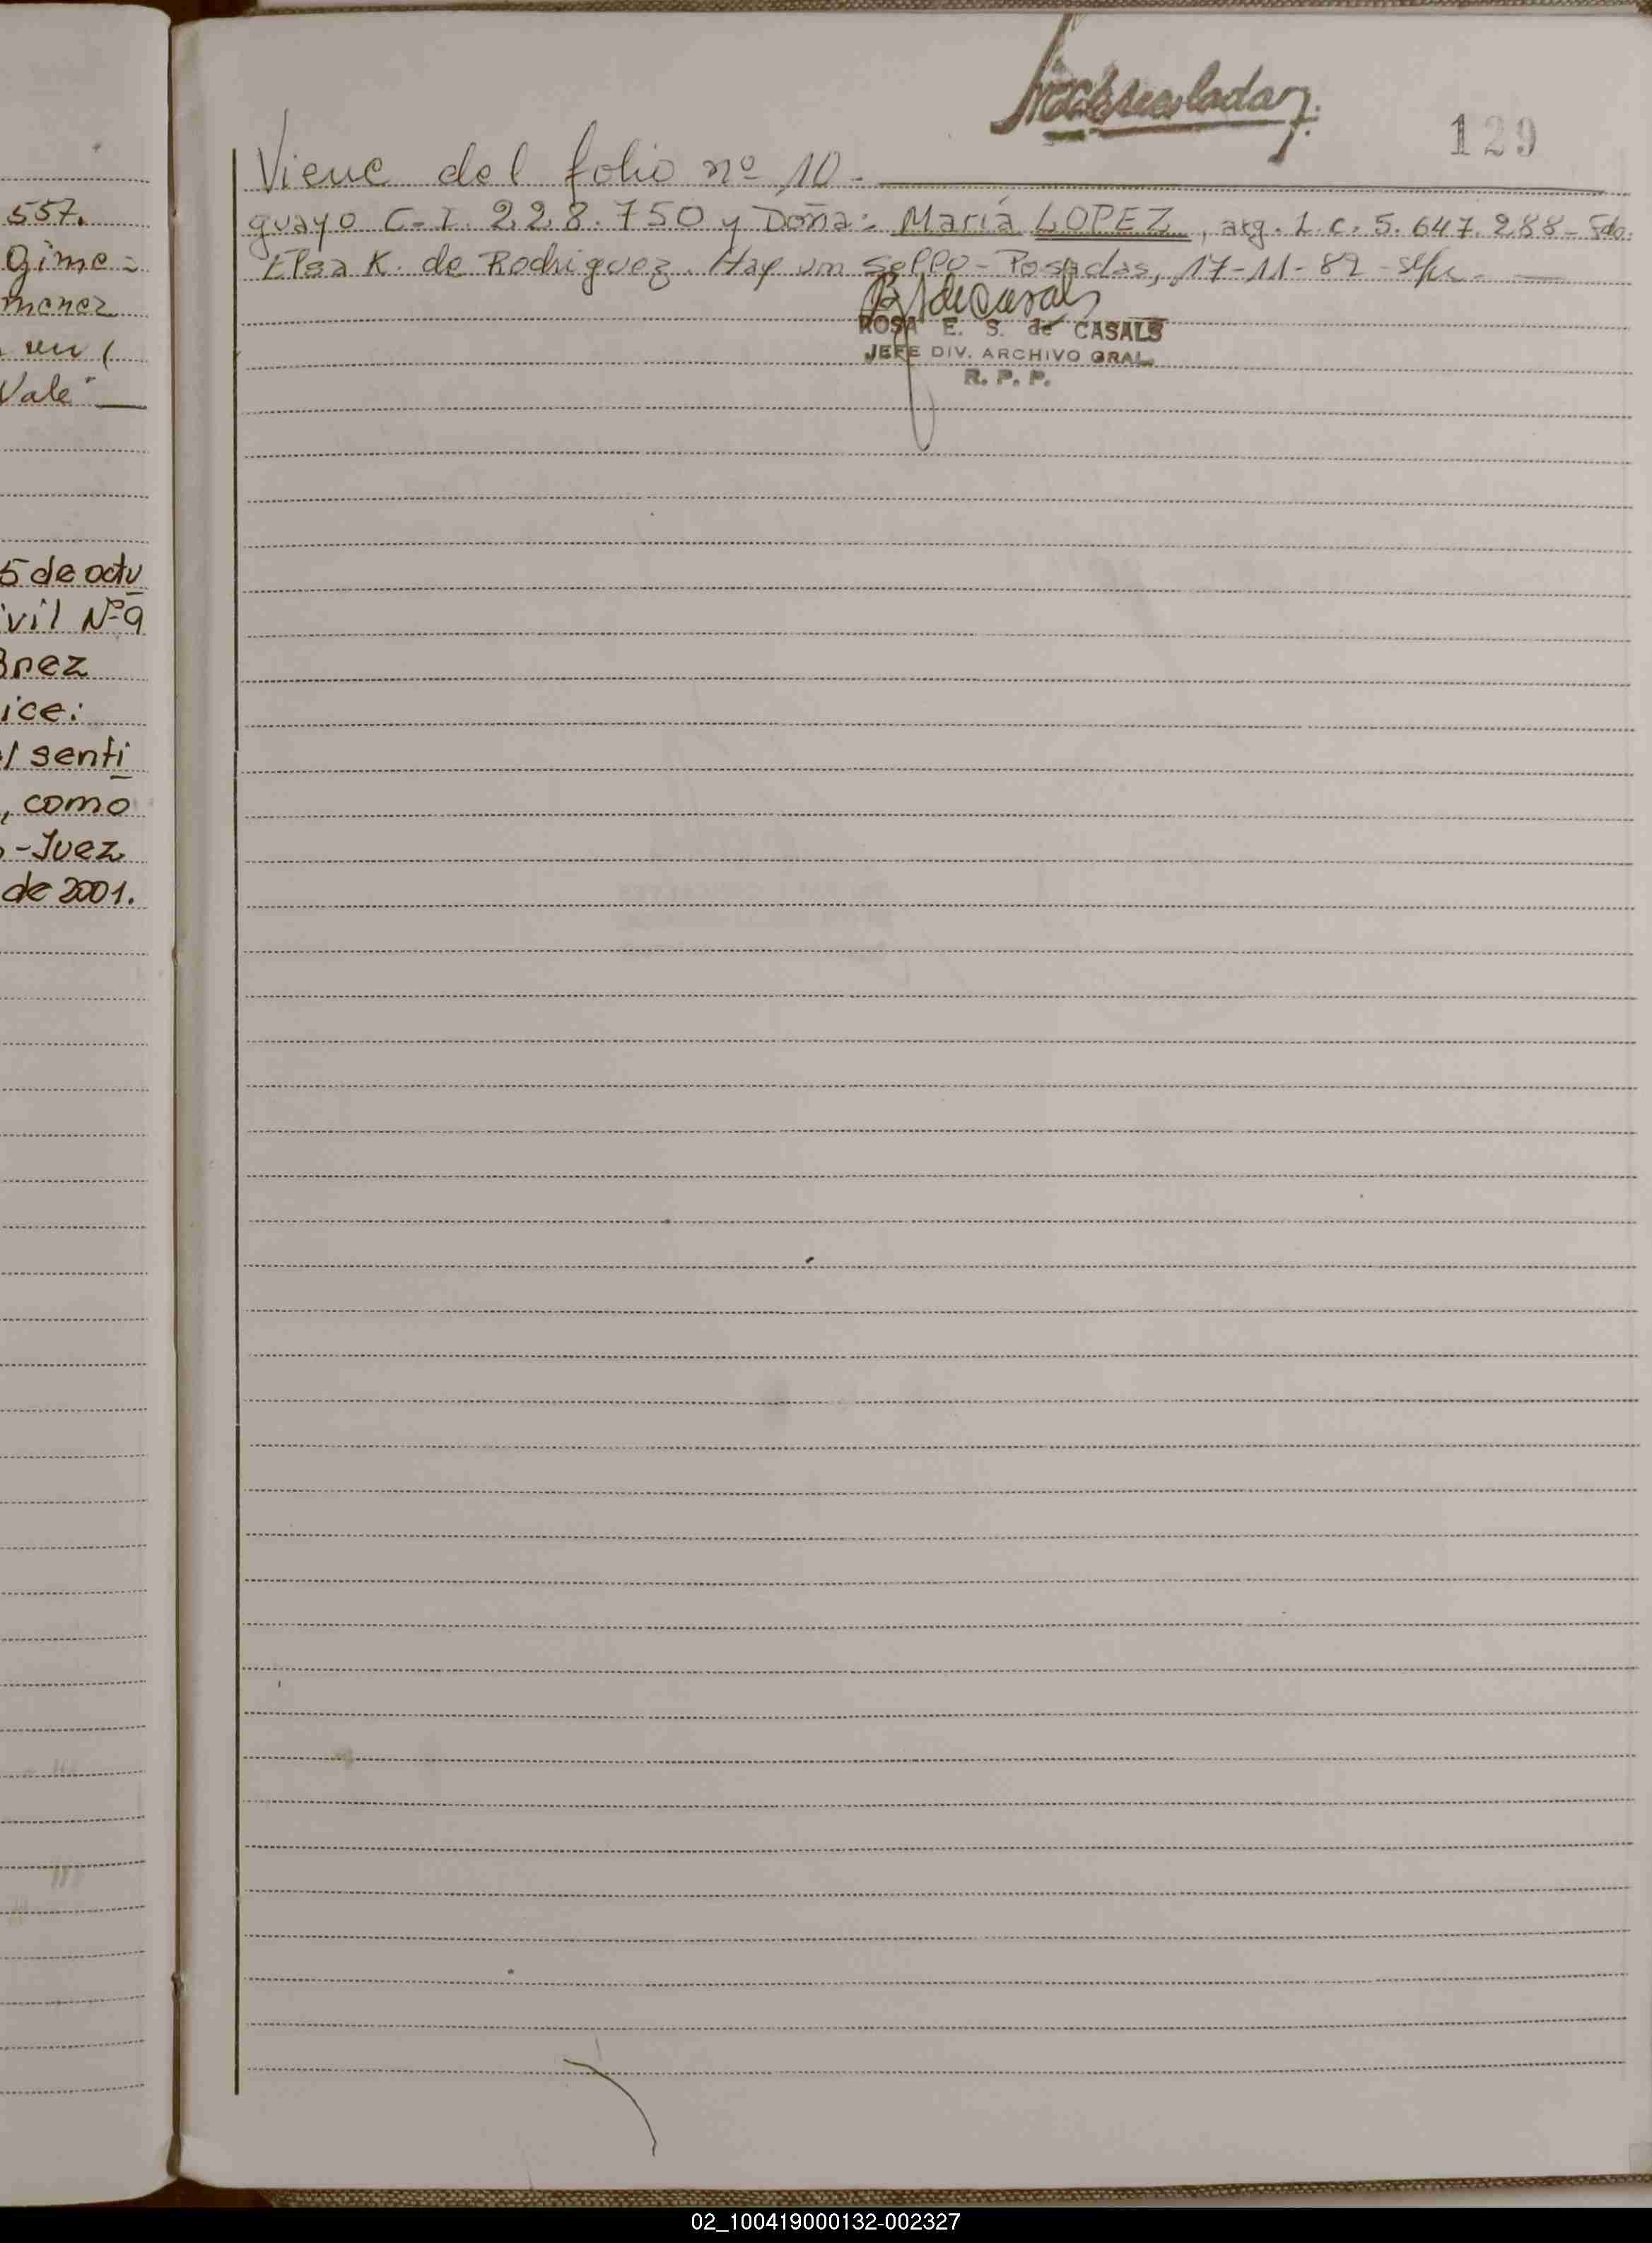 557.
Gime=
menez
en (
Vale" —
5 de octu
ivil Nº 9
ice:
l senti
, como
- Juez
de 2001.
129
Viene del folio nº 10.-
guayo C-I. 228.750 y Doña: María LOPEZ, arg. L.C. 5.647.288- Fdo.
Elsa K. de Rodriguez. Hay un sello- Posadas, 17-11-82-
ROSA E. S. de CASALS
JEFE DIV. ARCHIVO GRAL.
R. P. P.
02_100419000132-002327